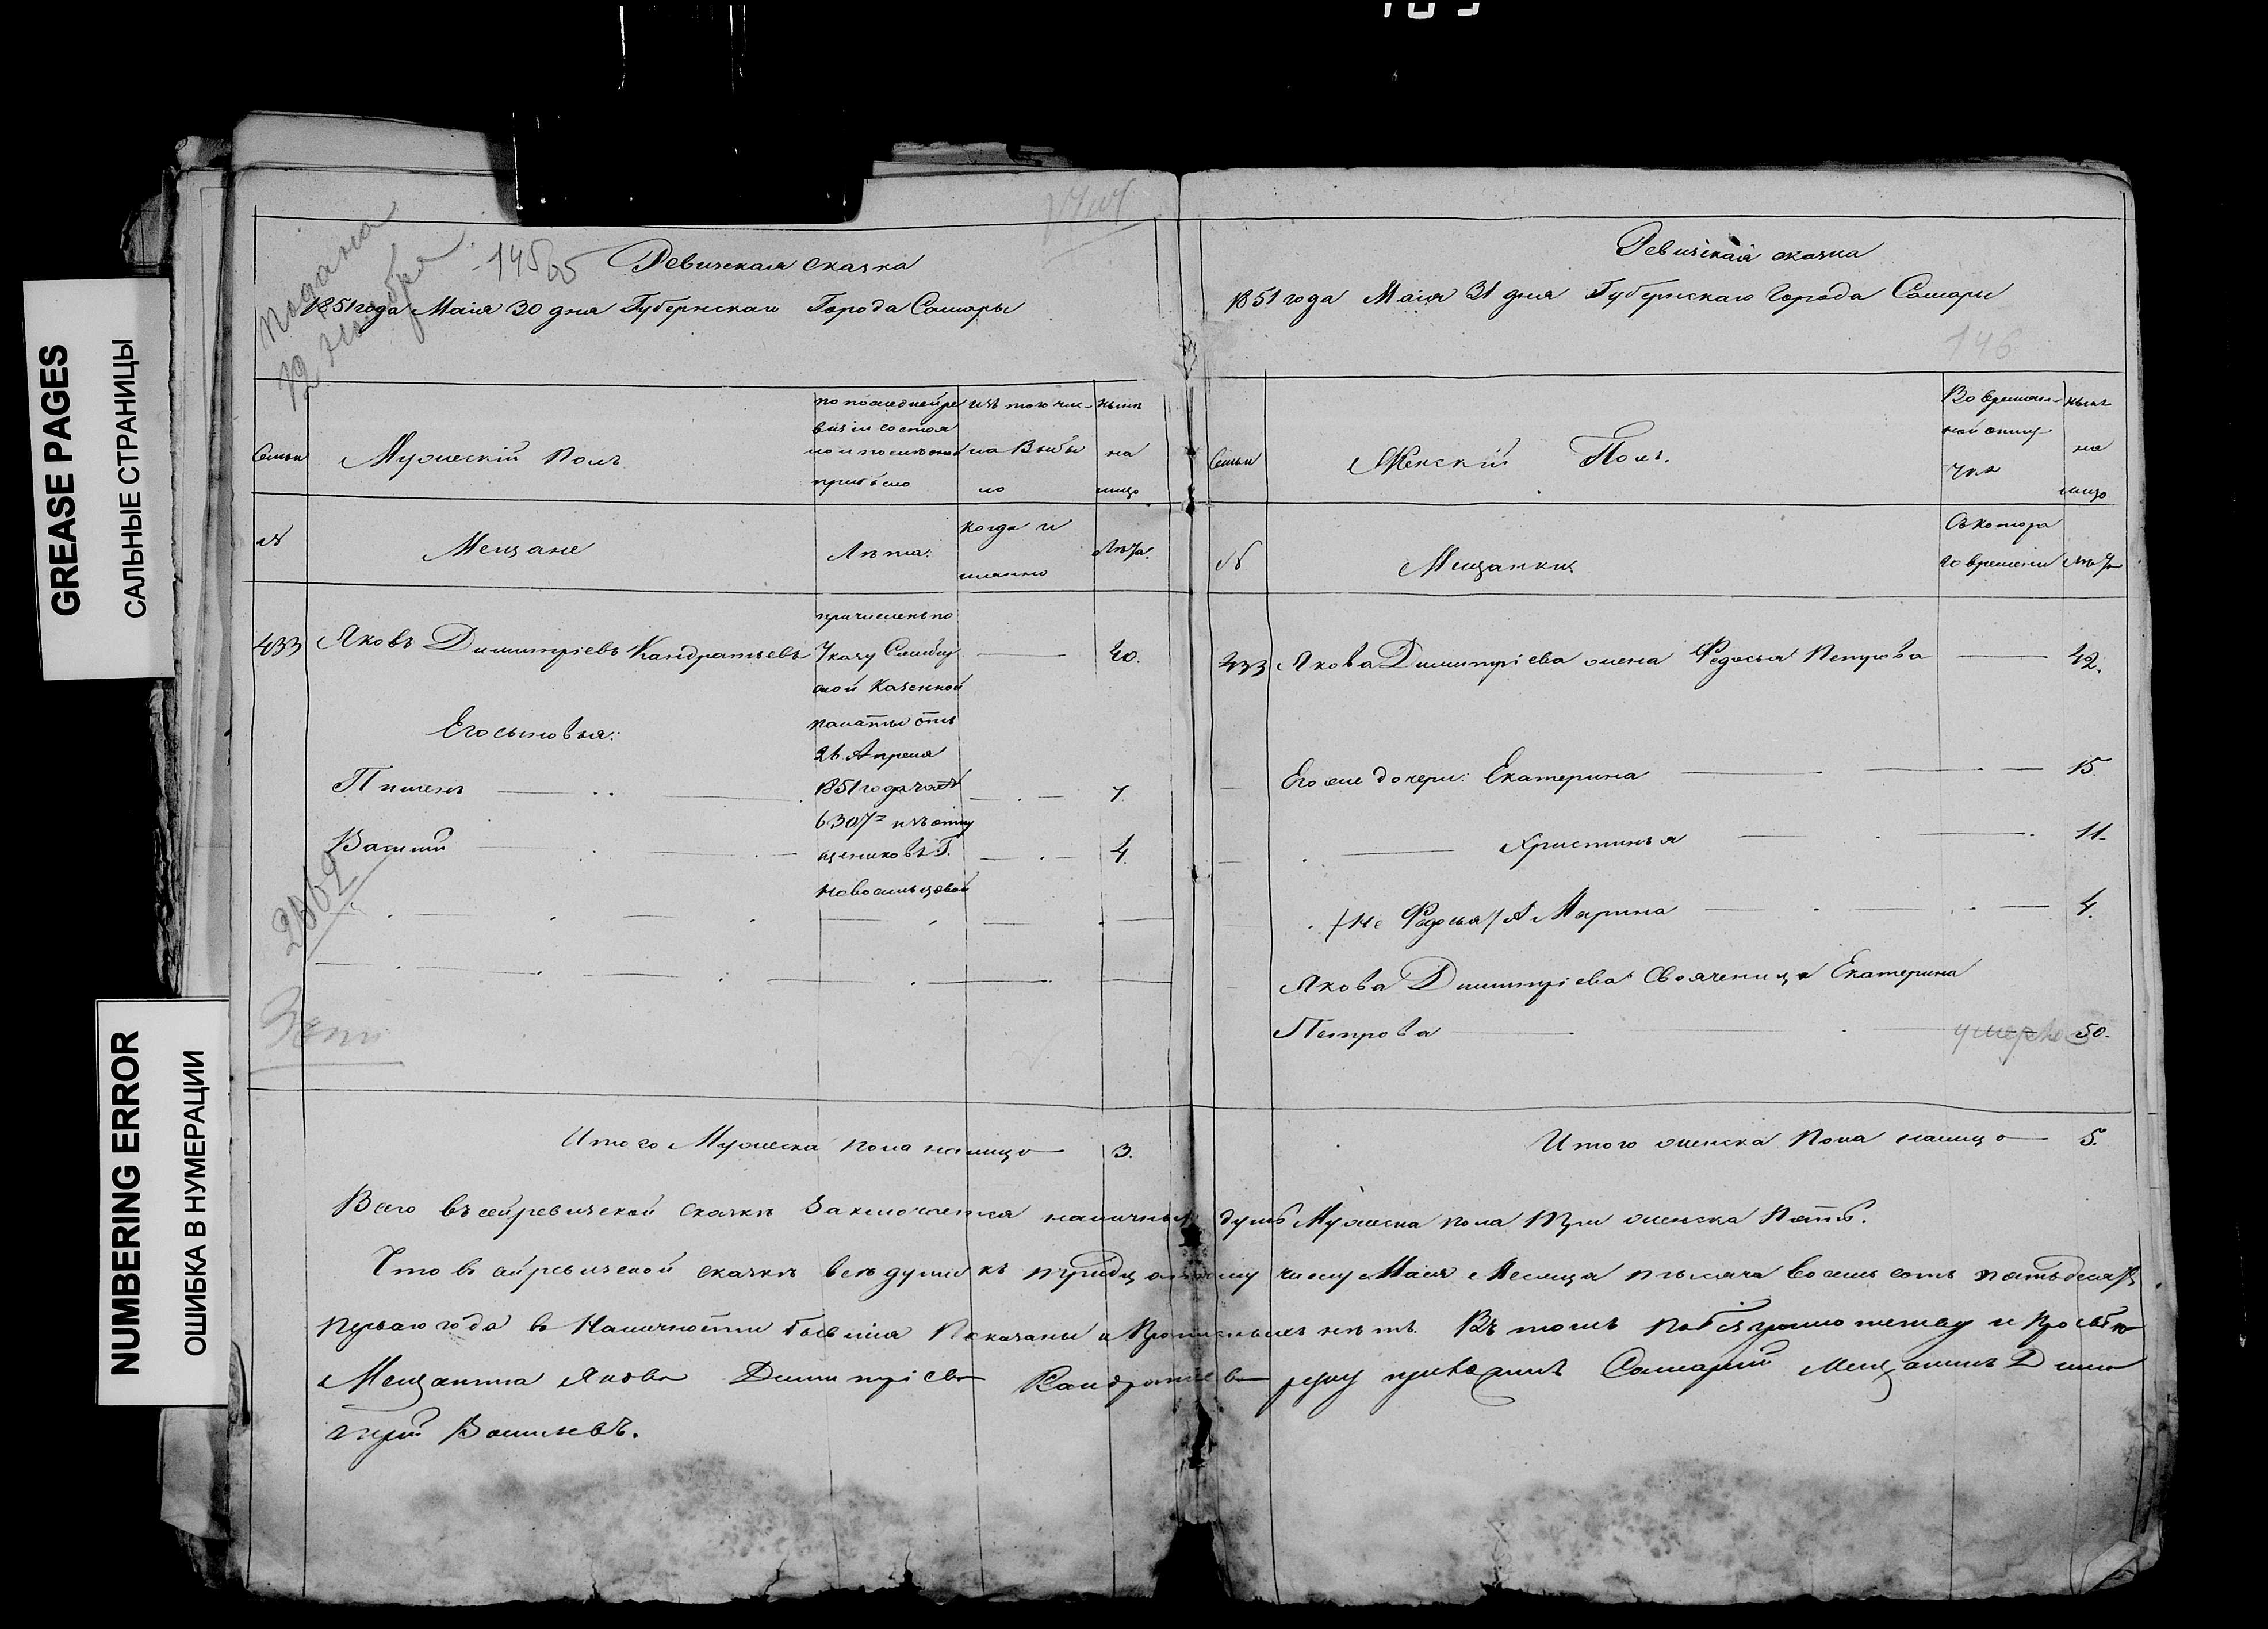 GREASE PAGES
САЛЬНЫЕ СТРАНИЦЫ
NUMBERING ERROR
ОШИБКА В НУМЕРАЦИИ
подана
12 Ноября
145
Ревизская сказка
1851 года Маія 30 дня Губернскаго Города Самары
Семьи
Мужескій Полъ
по последней ре
визіи состоя
ло и после оной
прибыло
изъ того чис-
ла Выбы
ло
ныне
на
лицо
№
Мещане
Лѣта.
когда и
именно
Лѣта.
433 Яковъ Димитріевъ Кандратьевъ
причисленъ по
Указу Симбир
ской Казенной
палаты отъ
26 Апреля
1851 года за №
6307м изъ отпу
щениковъ Г.
Новосильцовой
40.
Его сыновья:
Пименъ 7.
Василий 4.
2662
Итого Мужеска пола налицо 3.
Ревизская сказка
1851 года Маія 31 дня Губернскаго Города Самары
146
Семьи
Женскій Полъ.
Во времен-
ной отлу
чке
ныне
на
лицо
№
Мещанки
Съ котора
го времени
Лѣта
433 Якова Димитріева жена Федосья Петрова 42.
Его же дочери: Екатерина 15.
Христинья 11.
/Не Федосья/ А Марина 4.
Якова Димитріева Своячениця Екатерина
Петрова умерла 50.
Итого женска Пола налицо 5.
Всего въ сей ревизской сказкѣ Заключается наличныхъ душъ Мужеска пола три женска Пять.
Что въ сей ревизской сказкѣ все души къ тридцатому числу Маія Месяца тысяча восемь сотъ пятьдесятъ
перваго года въ Наличности бывшия Показаны и Прописныхъ нѣтъ. Въ томъ по безграмотству и Просьбѣ
Мещанина Якова Димитріева Кандратьева руку приложилъ Самарский Мещанинъ Дими
трий Васильевъ.